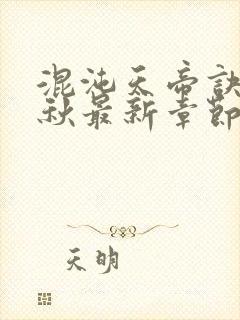 混沌天帝诀
秋最新章节
天明